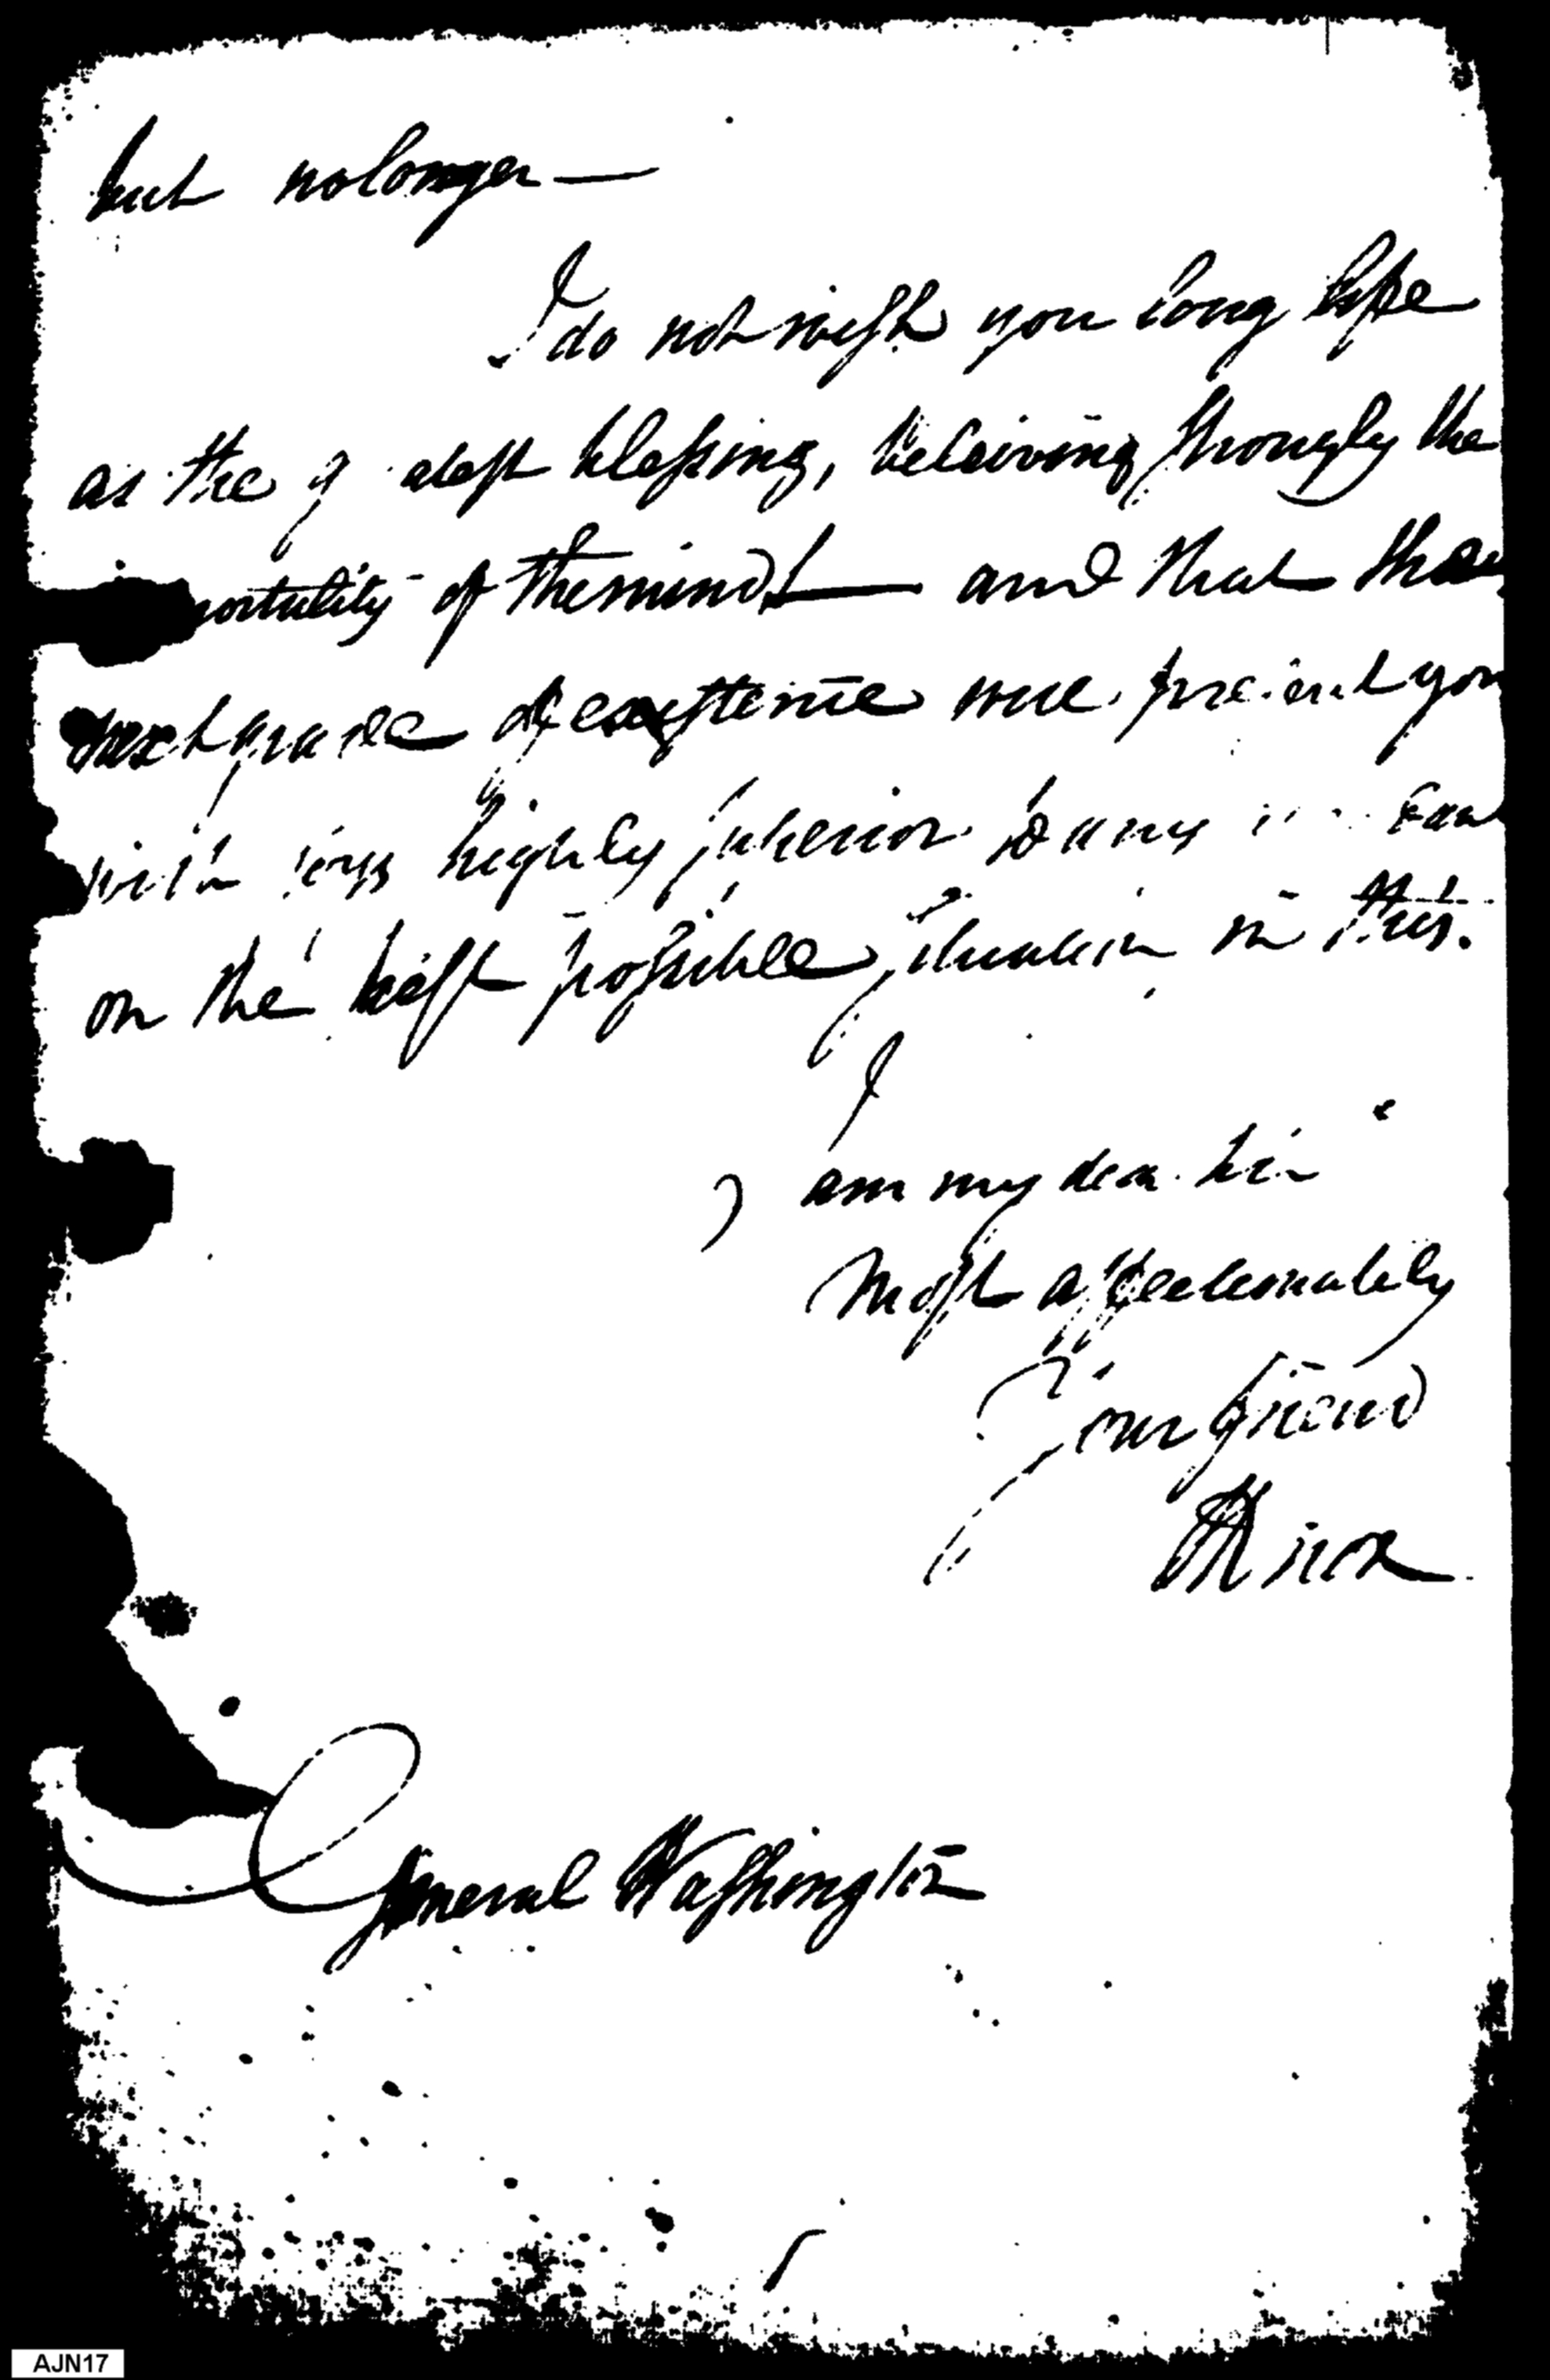 but no longer—
I do not wish you long life
as the g eatest blessing, beleiving strongly the
mortality of the mind— and that the
next grade of existence will present you
with joys highly superior to any
on the best possible situation in this.
I
am my dear sir
Most affectionately
Your friend
HKnox
General Washington
AJN17